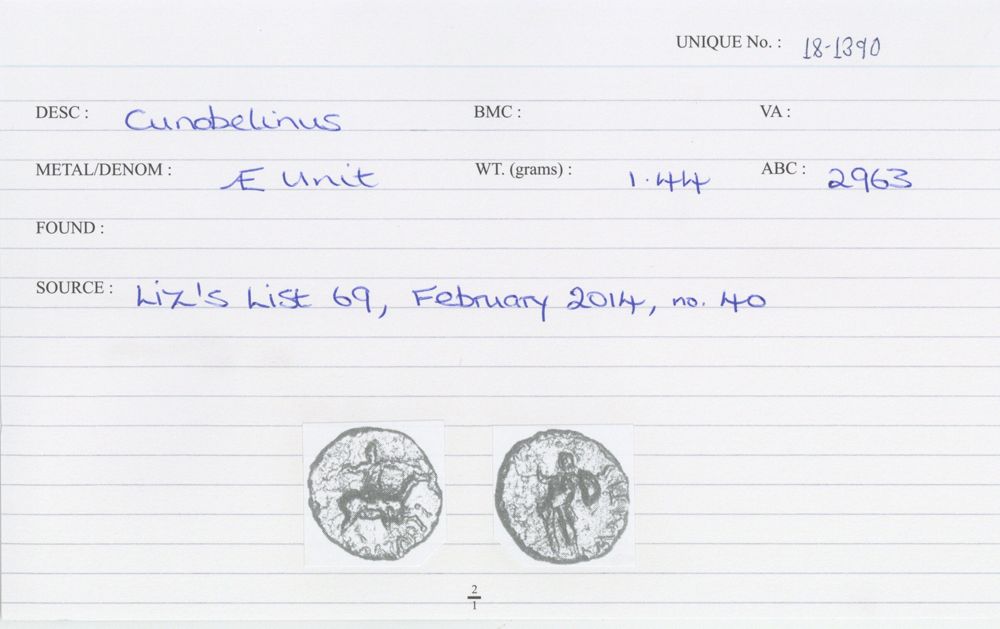 UNIQUE No. : 18-1390
DESC : Cunobelinus BMC : VA :
METAL/DENOM : Æ Unit WT. (grams) : 1.44 ABC : 2963
FOUND :
SOURCE : Liz's List 69, February 2014, no. 40
2
1